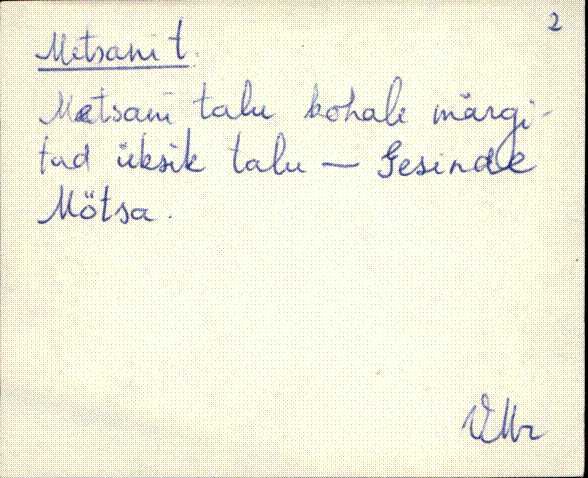 2
Metsani t.
Metsani talu kohale märgi-
tud üksik talu — Gesinde
Mötsa.
VMr